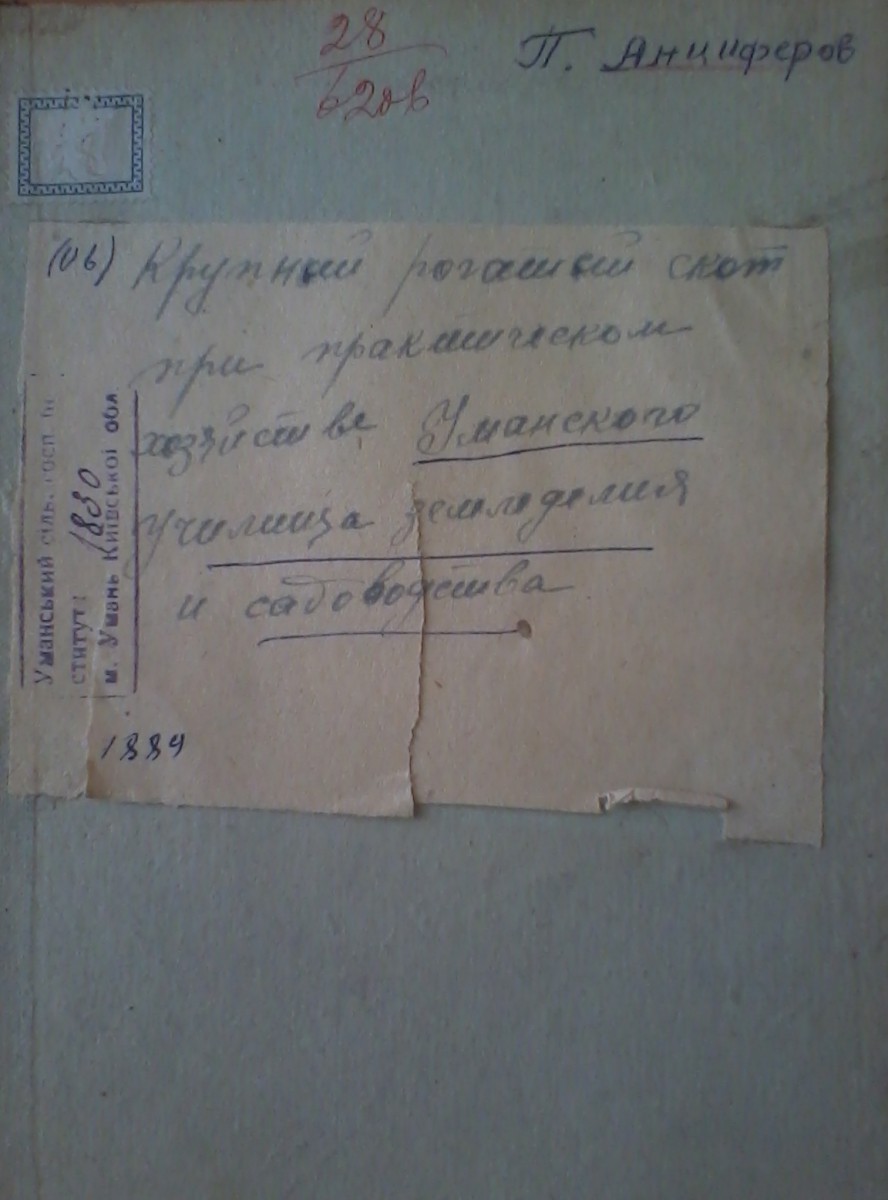 28
620в
П. Анциферов
(06) Крупный рогатый скот
при практическом
хозяйстве Уманского
училища земледелия
и садоводства
Уманський сіль. госп. Ін
ститут: 1830
м. Умань Київської обл
1889